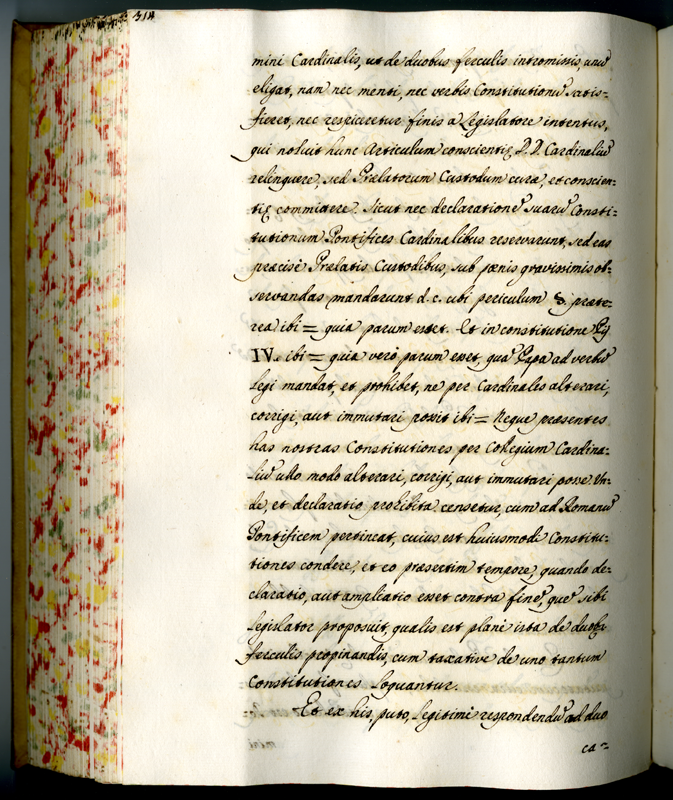 314
mini Cardinalis, ut de duobus ferculis intromissis, unũ
eligat, nam nec menti, nec verbis Constitutionũ satis-
fieret, nec respiceretur finis a Legislatore intentus,
qui noluit hunc Articulum conscientię D.D. Cardinaliũ
relinquere, sed Prælatorum Custodum curæ, et conscien=
tię committere. Sicut nec declarationẽ suarũ Consti-
tutionum Pontifices Cardinalibus reservarunt, sed eas
præcisè Prælatis Custodibus, sub pœnis gravissimis ob=
servandas mandarunt d. c. ubi periculum §. præte-
rea ibi = quia parum esset. Et in constitutione Pij
IV. ibi = quia verò parum esset, quæ Papa ad verbũ
legi mandat, et prohibet, ne per Cardinales alterari,
corrigi, aut immutari possit ibi = Neque præsentes
has nostras Constitutiones per Collegium Cardina=
liũ ullo modo alterari, corrigi, aut immutari posse. Un-
de, et declaratio prohibita censetur, cum ad Romanũ
Pontificem pertineat, cuius est huiusmodi Constitu-
tiones condere, et eo præsertim tempore, quando de-
claratio, aut ampliatio esset contra finẽ, quẽ sibi
Legislator proposuit, qualis est planè ista de duobus
ferculis propinandis, cum taxative de uno tantum
Constitutiones loquantur.
Et ex his, puto, legitimè respondendũ ad duo
ca=